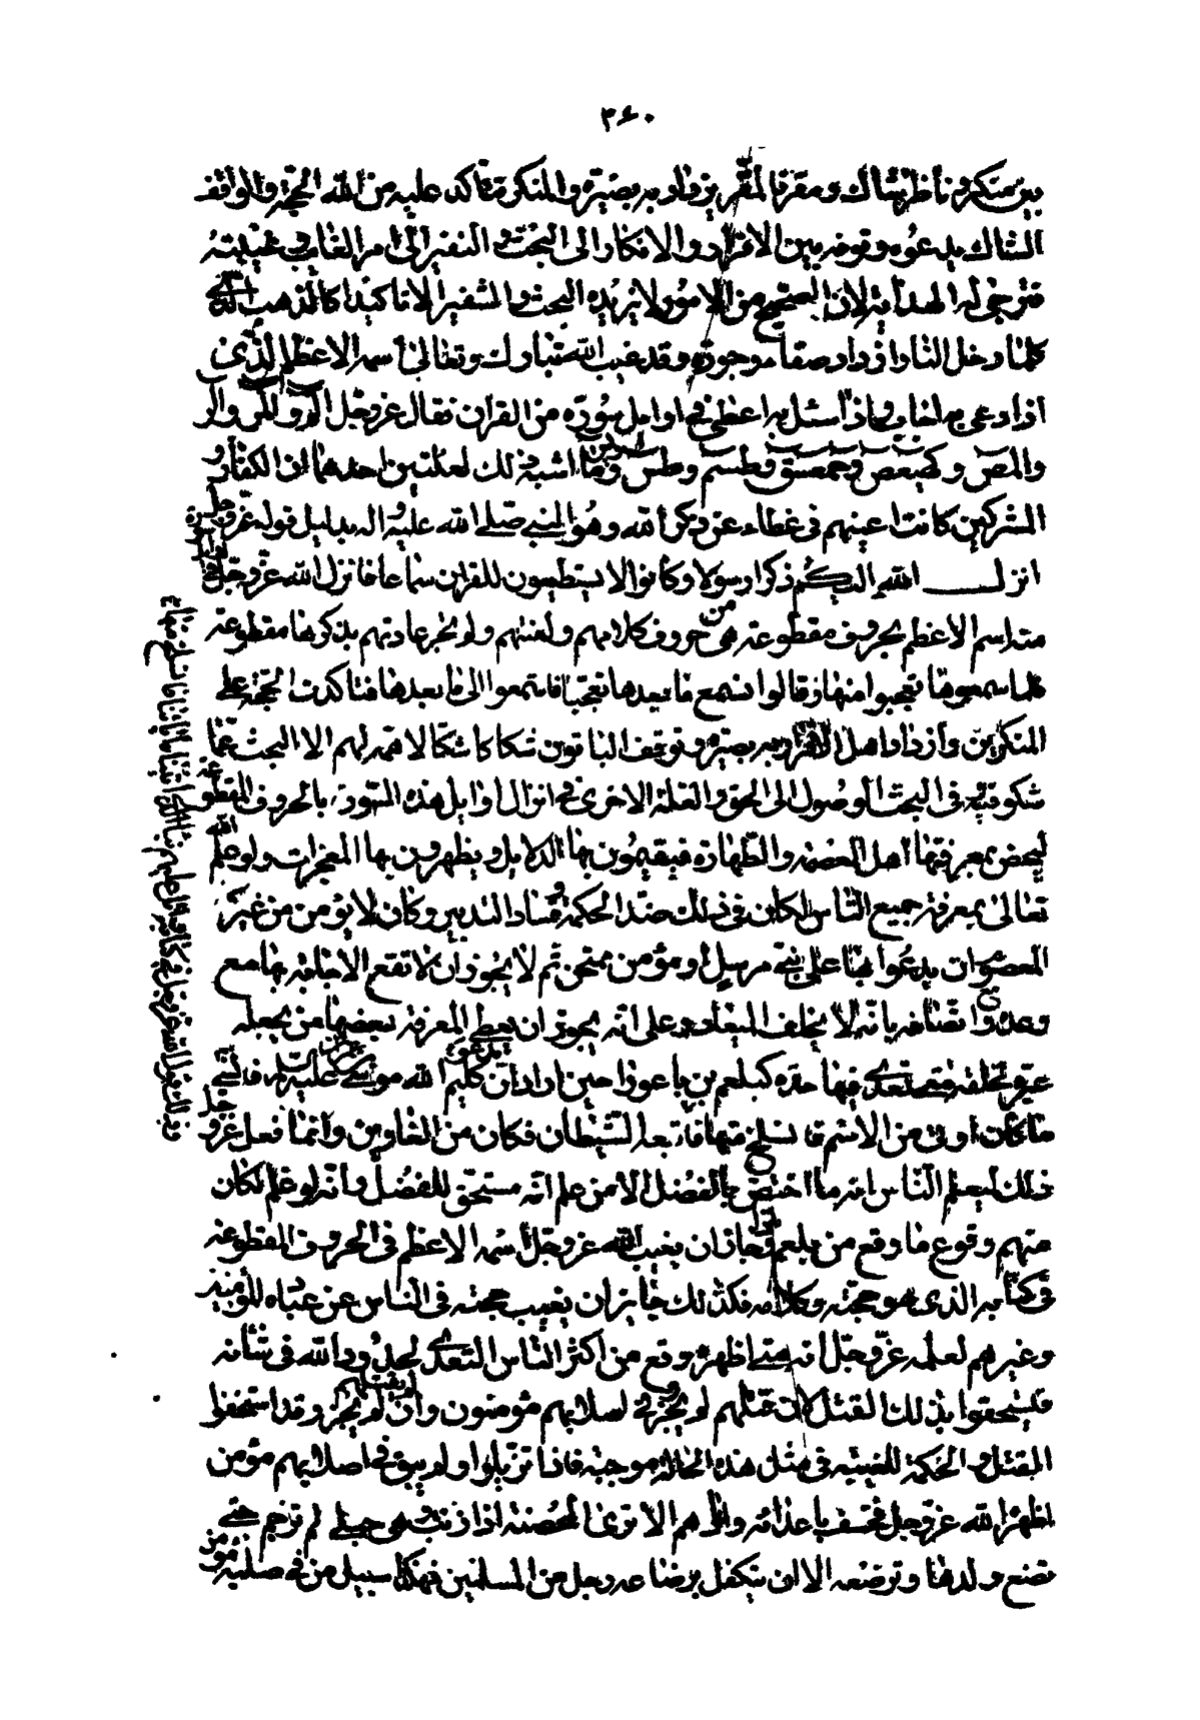 ٣٤٠
بين منكر وناظر شاك ومقر فالمقر يزداد به بصيرة والمنكر تتأكد عليه من الله الحجة والواقف
الشاك يدعوه وقوفه بين الاقرار والانكار الى البحث والتنقير الى امر الغايب وغيبته
فترجى له الهداية لان الصحيح من الامور لا يزيده البحث والتنقير الا تاكيدا كالذهب الذي
كلما دخل النار ازداد صفاء وجودة وقد غيب الله تبارك وتعالى اسمه الاعظم الذي
اذا دعى به اجاب واذا سئل به اعطى في اوايل سور من القران فقال عز وجل الم والمر والر
والمص وكهيعص وحمعسق وطسم وطس ويس وما اشبه ذلك لعلتين احدهما ان الكفار و
المشركين كانت اعينهم في غطاء عن ذكر الله وهو النبي صلى الله عليه واله بدليل قوله عز وجل
انزل الله اليكم ذكرا رسولا وكانوا لا يستطيعون للقران سمعا فانزل الله عز وجل في اوايل سورة
منه اسمه الاعظم بحروف مقطوعة هي من حروف كلامهم ولغتهم ولم تجر عادتهم بذكرها مقطوعة
فلما سمعوها تعجبوا منها وقالوا نسمع ما بعدها تعجبا فاستمعوا الى ما بعدها فتاكدت الحجة على
المنكرين وازداد اهل الاقرار به بصيرة وتوقف الباقون شكاكا شكا لا همة لهم الا البحث عما
شكوا فيه وفي البحث الوصول الى الحق والعلة الاخرى في انزال اوايل هذه السورة بالحروف المقطوعة
ليخص بمعرفتها اهل العصمة والطهارة فيقيمون بها الدلايل ويظهرون بها المعجزات ولو عم الله
تعالى بمعرفتها جميع الناس لكان في ذلك ضد الحكمة وفساد التدبير وكان لا يؤمن من غير
المعصوم ان يدعوا بها على نبي مرسل او مؤمن ممتحن ثم لا يجوز ان لا تقع الاجابة بها مع
وعده واتصافه بانه لا يخلف الميعاد على انه يجوز ان يعطى المعرفة ببعضها من يجعله
عبرة لخلقه متى تعدى فيها حده كبلعم بن باعورا حين اراد ان يدعو على كليم الله موسى عليه السلم فانسى
ما كان اوتى من الاسم فانسلخ منها فاتبعه الشيطان فكان من الغاوين وانما فعل عز وجل
ذلك ليعلم الناس انه ما اختص بالفضل الا من علم انه مستحق للفضل وانه لو عم لكان
منهم وقوع ما وقع من بلعم واذا جاز ان يغيب الله عز وجل اسمه الاعظم في الحروف المقطوعة
في كتابه الذي هو حجته وكلامه فكذلك جايز ان يغيب حجته في الناس عن عباده المؤمنين
وغيرهم لعلمه عز وجل انه متى اظهره وقع من اكثر الناس التعدى لحدود الله في شانه
فيستحقوا بذلك القتل فان قتلهم لم يجز وفي اصلابهم مؤمنون وان لم يقتلهم لم يجز وقد استحقوا
القتل والحكمة للغيبة في مثل هذه الحالة موجبة فاذا تزيلوا ولم يبق في اصلابهم مؤمن
اظهره الله عز وجل فخسف باعدائه وابادهم الا ترى المحصنة اذا زنت وهي حبلى لم ترجم حتى
تضع ولدها وترضعه الا ان يتكفل برضاعه رجل من المسلمين فهكذا سبيل من في صلبه مؤمن